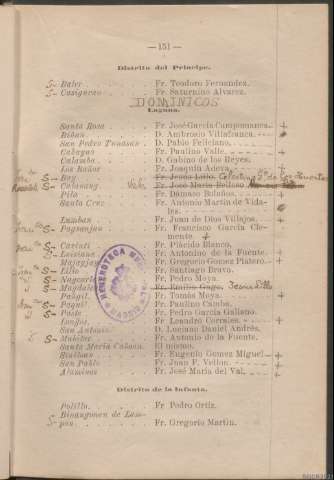 — 151 —
Distrito del Príncipe.
S- Baler . . . . . Fr. Teodoro Fernandez.
S- Casiguran . . . . Fr. Saturnino Alvarez.
DOMINICOS
Laguna.
Santa Rosa . . . . Fr. José García Campomanes. +
Biñan . . . . . D. Ambrosio Villafranca. —
San Pedro Tunasan . . D. Pablo Feliciano.
Cabuyao . . . . Fr. Paulino Valle. +
Calamba . . . . D. Gabino de los Reyes.
Los Baños . . . . Fr. Joaquin Adeva.
S- Bay . . . . Fr. Jesus Lillo.
S- Calauang . . . . Fr. José María Belloso
Pila . . . . . Fr. Dámaso Bolaños. +
Santa Cruz . . . . Fr. Antonio Martin de Vida-
les. +
Lumban . . . . Fr. Juan de Dios Villajos. +
S- Pagsanjan . . . . Fr. Francisco García Cle-
mente +
S- Caviuti . . . . Fr. Plácido Blanco.
Luisiana . . . . Fr. Antonino de la Fuente.
Majayjay . . . . Fr. Gregorio Gomez Platero. +
S- Lilio . . . . Fr. Santiago Bravo.
S- Nagcarlan . . . . Fr. Pedro Moya.
S- Magdalena . . . . Fr. Emilio Gago. Jesus Lillo
Pangil . . . . Fr. Tomás Moya. +
S- Paquil . . . . Fr. Paulino Camba.
S- Paete . . . . Fr. Pedro García Galiano.
Longos . . . . Fr. Leandro Corrales. +
San Antonio . . . . D. Luciano Daniel Andrés.
S- Mabitac . . . . Fr. Antonio de la Fuente.
Santa María Cabooa . . El mismo.
Siniloan . . . . Fr. Eugenio Gomez Miguel +
San Pablo . . . . Fr. Juan F. Vellon. +
Alaminos . . . . Fr. José María del Val. +
Distrito de la Infanta.
Polillo . . . . Fr. Pedro Ortiz.
Binangonan de Lam-
pon . . . . . Fr. Gregorio Martin.